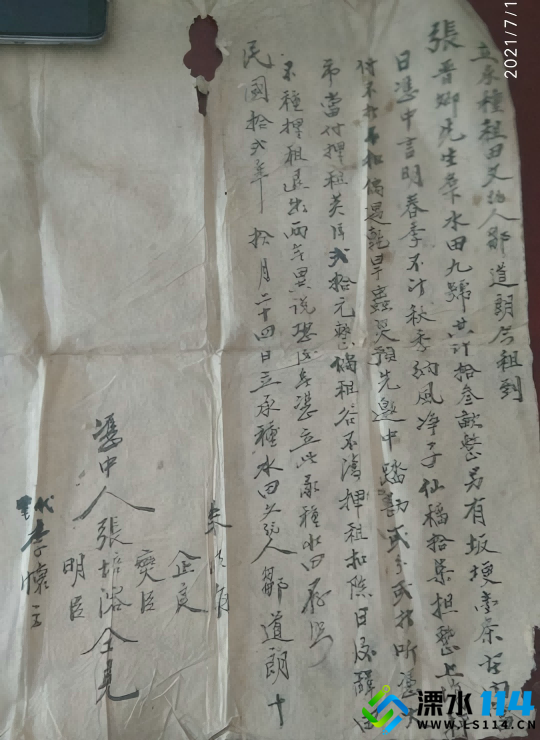 立承種租田文約人鄒道朗今租到
張晋卿先生 水田九號共計拾叁畝整另有坂埂
日憑中言明春季不計秋季納風净子仙稲拾柒担整上
付不 倘遇乾旱蟲災預先邀中踏勘或 或 听憑
帋當付押租英洋弍拾元整倘租谷不清押租扣除日後歸田
不種押租退出兩無異説恐後無憑立此承種水田 存照
民國拾弍年拾月二十四日立承種水田文約人鄒道朗十
企良
憑中人張培溶仝見
寶臣
明臣
代筆李懷玉
2021/7/1
溧水114
WWW.LS114.CN